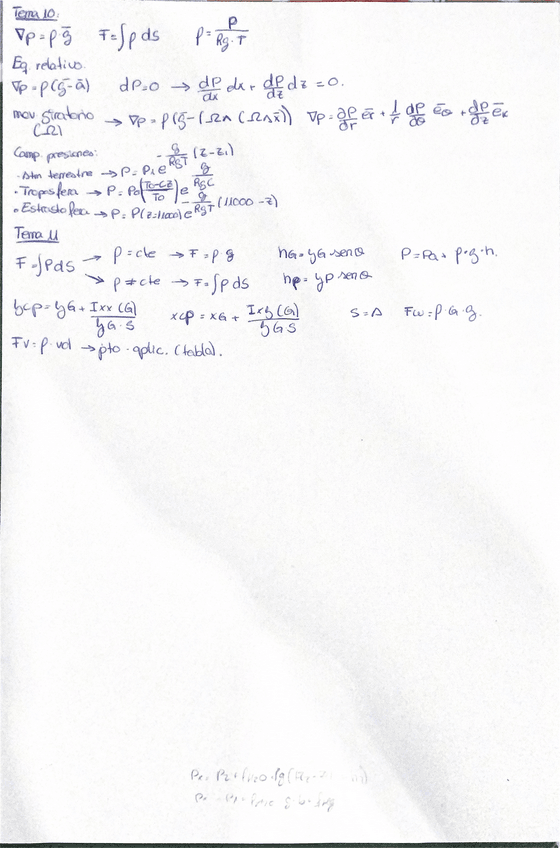 Tema 10:
∇p = ρ·g̅   F = ∫p ds   ρ = P/(Rg·T)
Eq. relativo.
∇p = ρ(g̅-a̅)   dP=0 → dP/dx dx + dP/dz dz = 0.
mov. giratorio (Ω) → ∇p = ρ(g̅-(Ω∧(Ω∧x̅))   ∇p = ∂P/∂r e̅r + 1/r dP/dθ e̅θ + dP/dz e̅k
Comp. presiones:
· Atm terrestre → P = P1 e^(-g/(RgT) (z-z1))
· Troposfera → P = P0((T0-Cz)/T0) e^(g/(RgC))
· Estratosfera → P = P(z=11000) e^(-g/(RgT) (11000-z))
Tema 11
F = ∫p dS → p = cte → F = p·g   hG = yG·senθ   P = Pa + ρ·g·h.
→ p ≠ cte → F = ∫p dS   hp = yp senθ
ycp = yG + Ixx(G)/(yG·S)   xcp = xG + Ixy(G)/(yG S)   S = A   Fw = ρ·G·g.
Fv = ρ·vol → pto·aplic. (tabla).